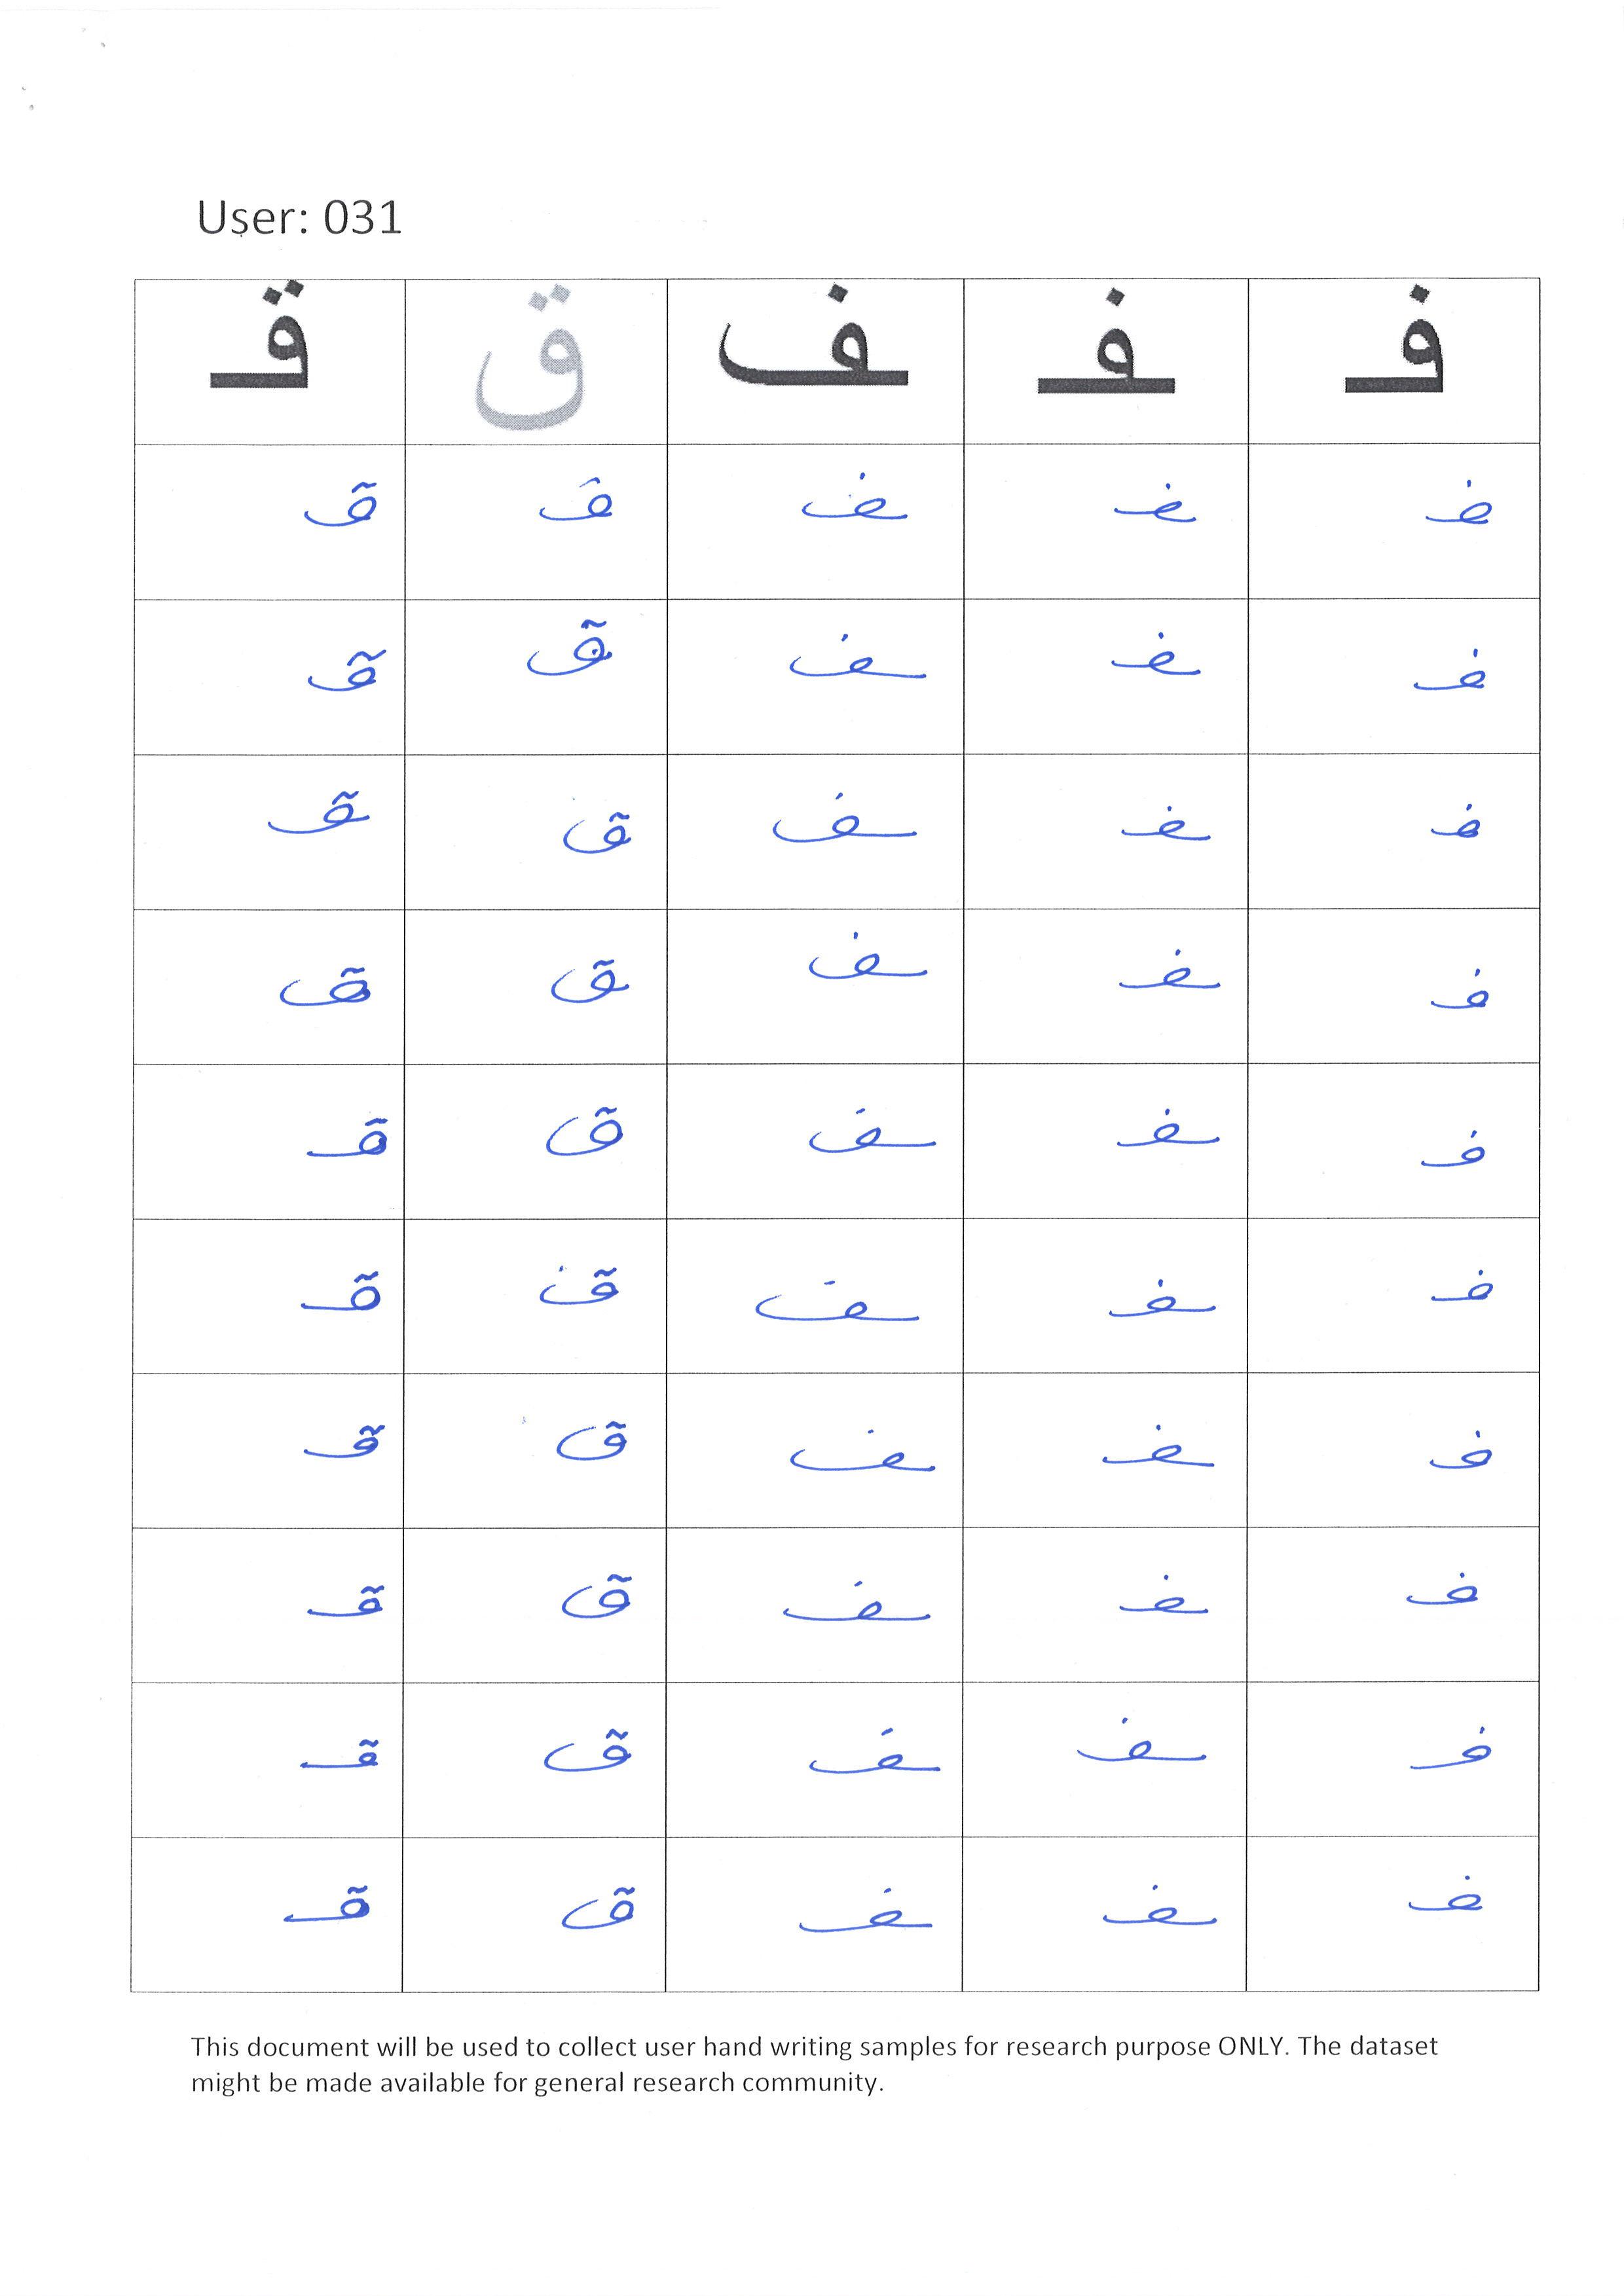 User: 031
فـ ـفـ ـف ق قـ
فـ ـفـ ـف ق قـ
فـ ـفـ ـف ق قـ
فـ ـفـ ـف ق قـ
فـ ـفـ ـف ق قـ
فـ ـفـ ـف ق قـ
فـ ـفـ ـف ق قـ
فـ ـفـ ـف ق قـ
فـ ـفـ ـف ق قـ
فـ ـفـ ـف ق قـ
فـ ـفـ ـف ق قـ
This document will be used to collect user hand writing samples for research purpose ONLY. The dataset
might be made available for general research community.